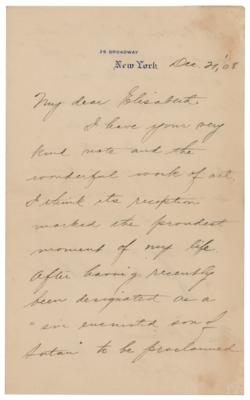 26 BROADWAY
New York
Dec. 21, '08
My dear Elisabeth.
I have your very
kind note and the
wonderful work of art.
I think its reception
marked the proudest
moment of my life
After having recently
been designated as a
"sin encrusted son of
Satan" to be proclaimed